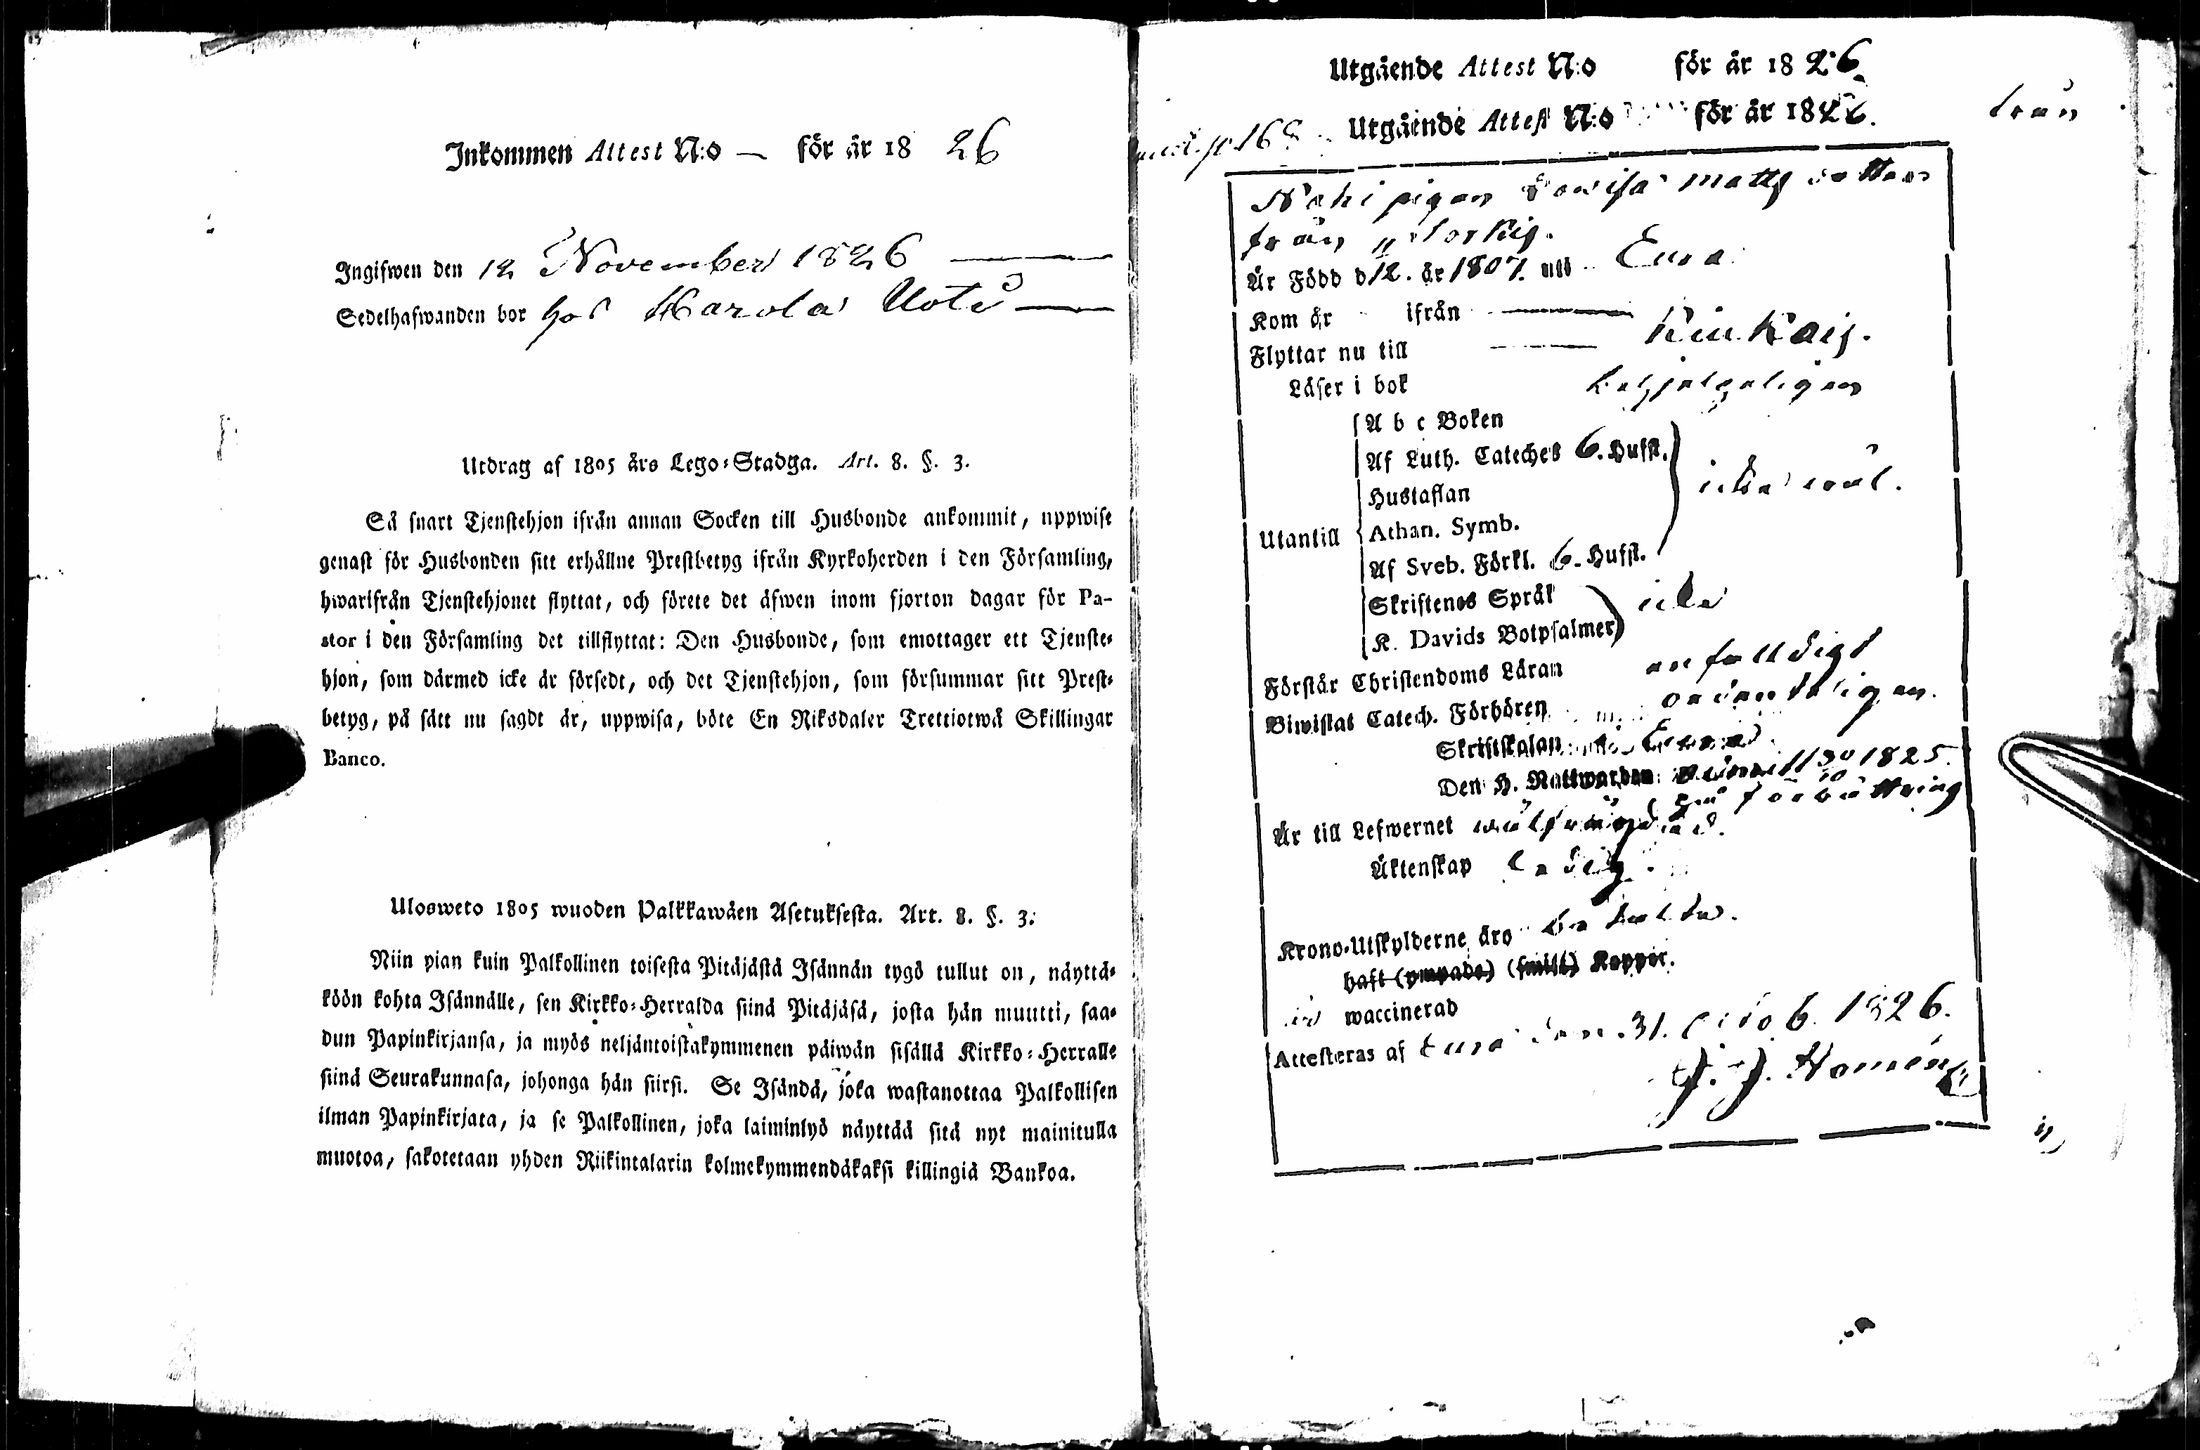 Inkommen Attest N:o — för år 18 26
Ingifwen den 12 November 1826
Sedelhafwanden bor hos Harola Uoti
Utdrag af 1805 års Lego-Stadga. Art. 8. §. 3.
Så snart Tjenstehjon ifrån annan Socken till Husbonde ankommit, uppwise
genast för Husbonden sitt erhållne Prestbetyg ifrån Kyrkoherden i den Församling,
hwarifrån Tjenstehjonet flyttat, och förete det äfwen inom fjorton dagar för Pa-
stor i den Församling det tillflyttat: Den Husbonde, som emottager ett Tjenste-
hjon, som därmed icke är försedt, och det Tjenstehjon, som försummar sitt Prest-
betyg, på sätt nu sagdt är, uppwisa, böte En Riksdaler Trettiotwå Skillingar
Banco.
Ulosweto 1805 wuoden Palkkawäen Asetuksesta. Art. 8. §. 3.
Niin pian kuin Palkollinen toisesta Pitäjästä Isännän tygö tullut on, näyttä-
köön kohta Isännälle, sen Kirkko-Herralda siinä Pitäjäsä, josta hän muutti, saa-
dun Papinkirjansa, ja myös neljäntoistakymmenen päiwän sisällä Kirkko-Herralle
siinä Seurakunnasa, johonga hän siirsi. Se Isändä, joka wastanottaa Palkollisen
ilman Papinkirjata, ja se Palkollinen, joka laiminlyö näyttää sitä nyt mainitulla
muotoa, sakotetaan yhden Riikintalarin kolmekymmendäkaksi killingiä Bankoa.
Utgående Attest N:o för år 18 26
Utgående Attest N:o för år 1826. från
pigan Lovisa Matts dotter
från
Är Född d 12. år 1807. uti Eura
Kom år ifrån
Flyttar nu till Kiukais.
Läser i bok behjelpeligen
A b c Boken
Af Luth. Cateches 6. Hufst.
Hustaflan icke wäl.
Utantill Athan. Symb.
Af Sveb. Förkl. 6. Hufst.
Skriftenes Språk icke
K. Davids Botpsalmer
Förstår Christendoms Läran enfalldigt
Biwistat Catech. Förhören ordenteligen.
Skriftskalan i Eura
Den H. Nattwarden 1825.
Är till Lefwernet wälfrägdad. på förbättring
Äktenskap ledig.
Krono-Utskylderne äro betalta.
haft (ympade) (smitt) Koppor.
är waccinerad
Attesteras af Eura den 31. Octob. 1826.
J. J. Homén